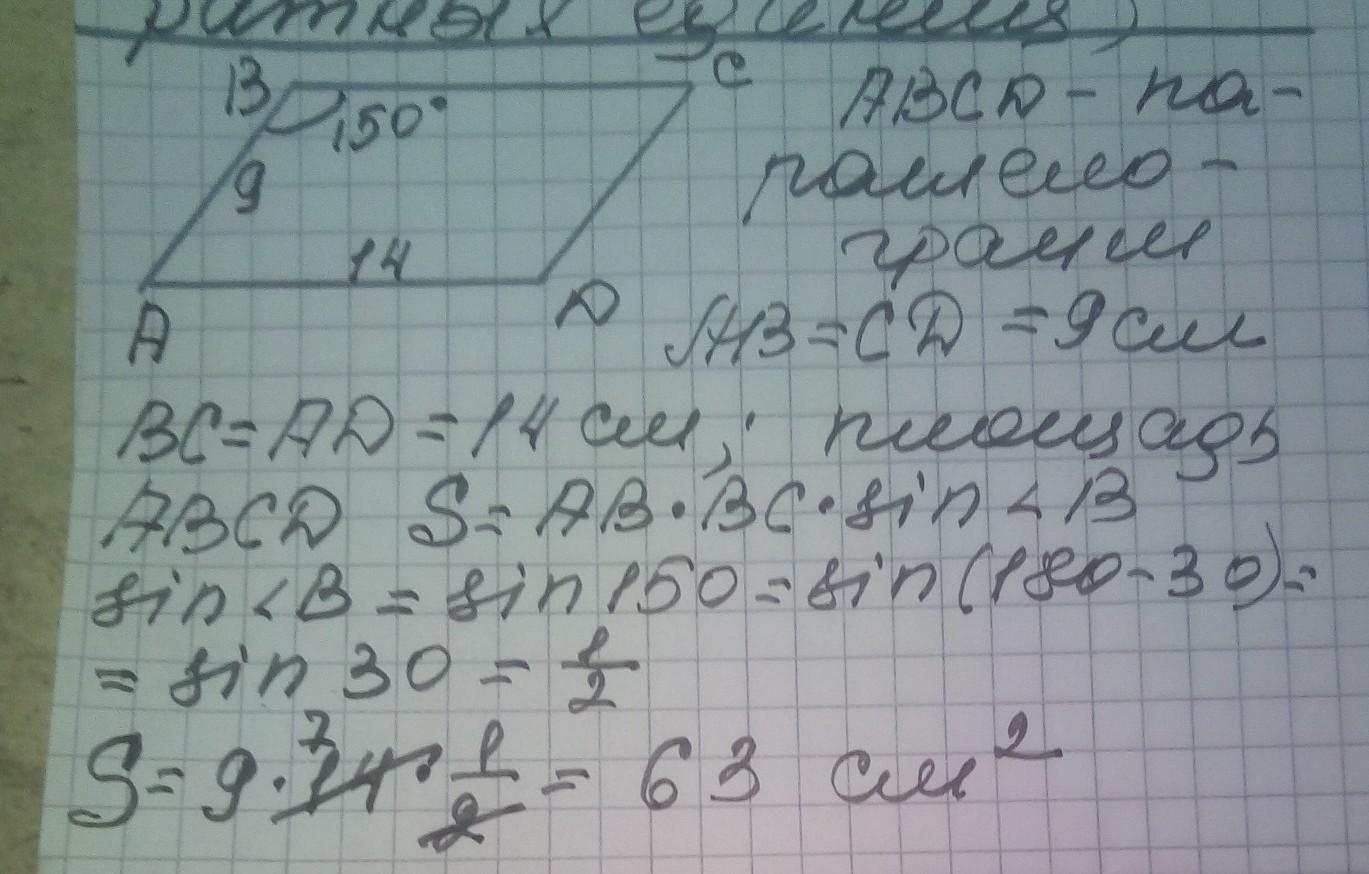 B C
150°
9
14
A D
ABCD - па-
раллело-
грамм
AB = CD = 9 см
BC = AD = 14 см; площадь
ABCD S = AB · BC · sin < B
sin < B = sin 150 = sin (180 - 30) =
= sin 30 = 1/2
S = 9 · 14 7 · 1/2 = 63 см²